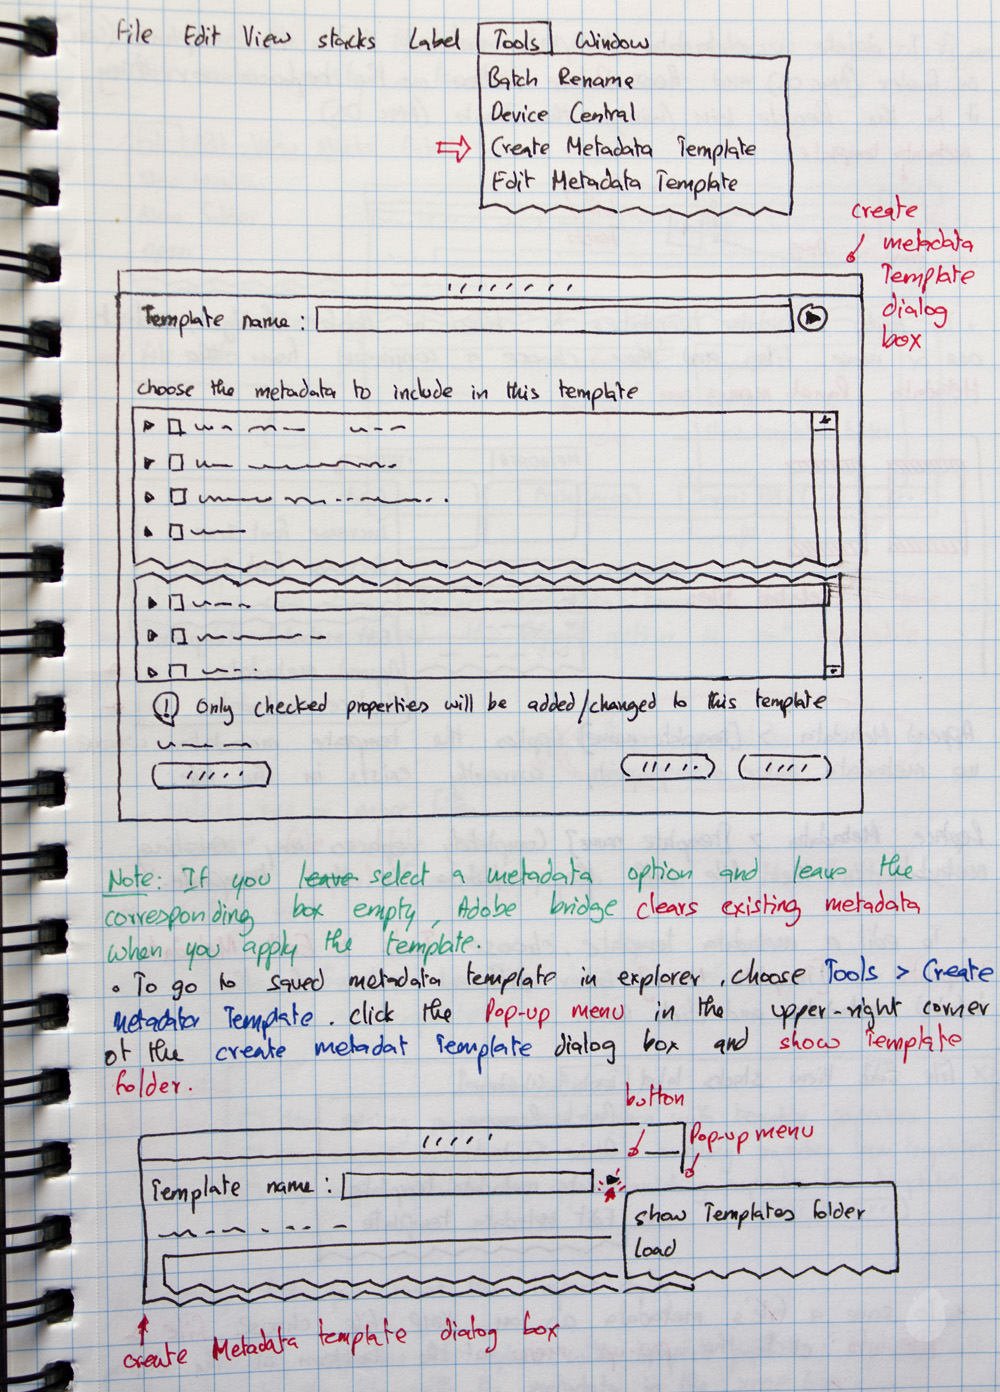 File Edit View stacks Label Tools Window
Batch Rename
Device Central
Create Metadata Template
Edit Metadata Template
create
metadata
Template
dialog
box
Template name :
choose the metadata to include in this template
! Only checked properties will be added/changed to this template
Note: If you leave select a metadata option and leave the
corresponding box empty, Adobe bridge clears existing metadata
when you apply the template.
• To go to saved metadata template in explorer, choose Tools > Create
Metadator Template. click the Pop-up menu in the upper-right corner
of the create metadat Template dialog box and show Template
folder.
button
Pop-up menu
Template name :
show Templates folder
Load
create Metadata template dialog box